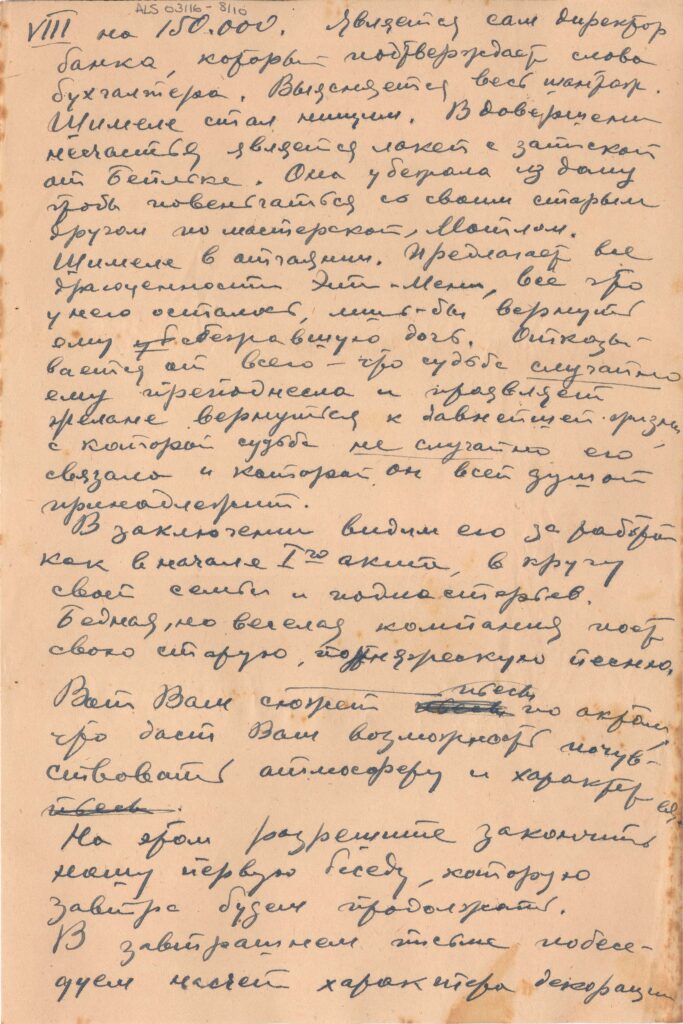 ALS 03/16 - 8/10
VIII на 150.000. Является сам директор
банка, который подтверждает слова
бухгалтера. Выясняется весь шантаж.
Шимеле стал нищим. В довершении
несчастья является лакей с запиской
от Бейльке. Она убежала из дому
чтобы повенчаться со своим старым
другом по мастерской, Мотлом.
Шимеле в отчаянии. Предлагает все
драгоценности Эти-Мени, всё что
у него осталось, лишь-бы вернуть
ему сбежавшую дочь. Отказы-
вается от всего – что судьба случайно
ему преподнесла и проявляет
желание вернуться к давнейшей жизни
с которой судьба не случайно его
связала и которой он всей душой
принадлежит.
В заключении видим его за работой
как в начале Iго акта, в кругу
своей семьи и подмастерьев.
Бедная, но веселая компания поет
свою старую, портняжескую песню.
Вот Вам сюжет пьесы по актам,
что даст Вам возможность почув-
ствовать атмосферу и характер её.
пьесы.
На этом разрешите закончить
нашу первую беседу, которую
завтра будем продолжать.
В завтрашнем письме побесе-
дуем насчет характера декорации